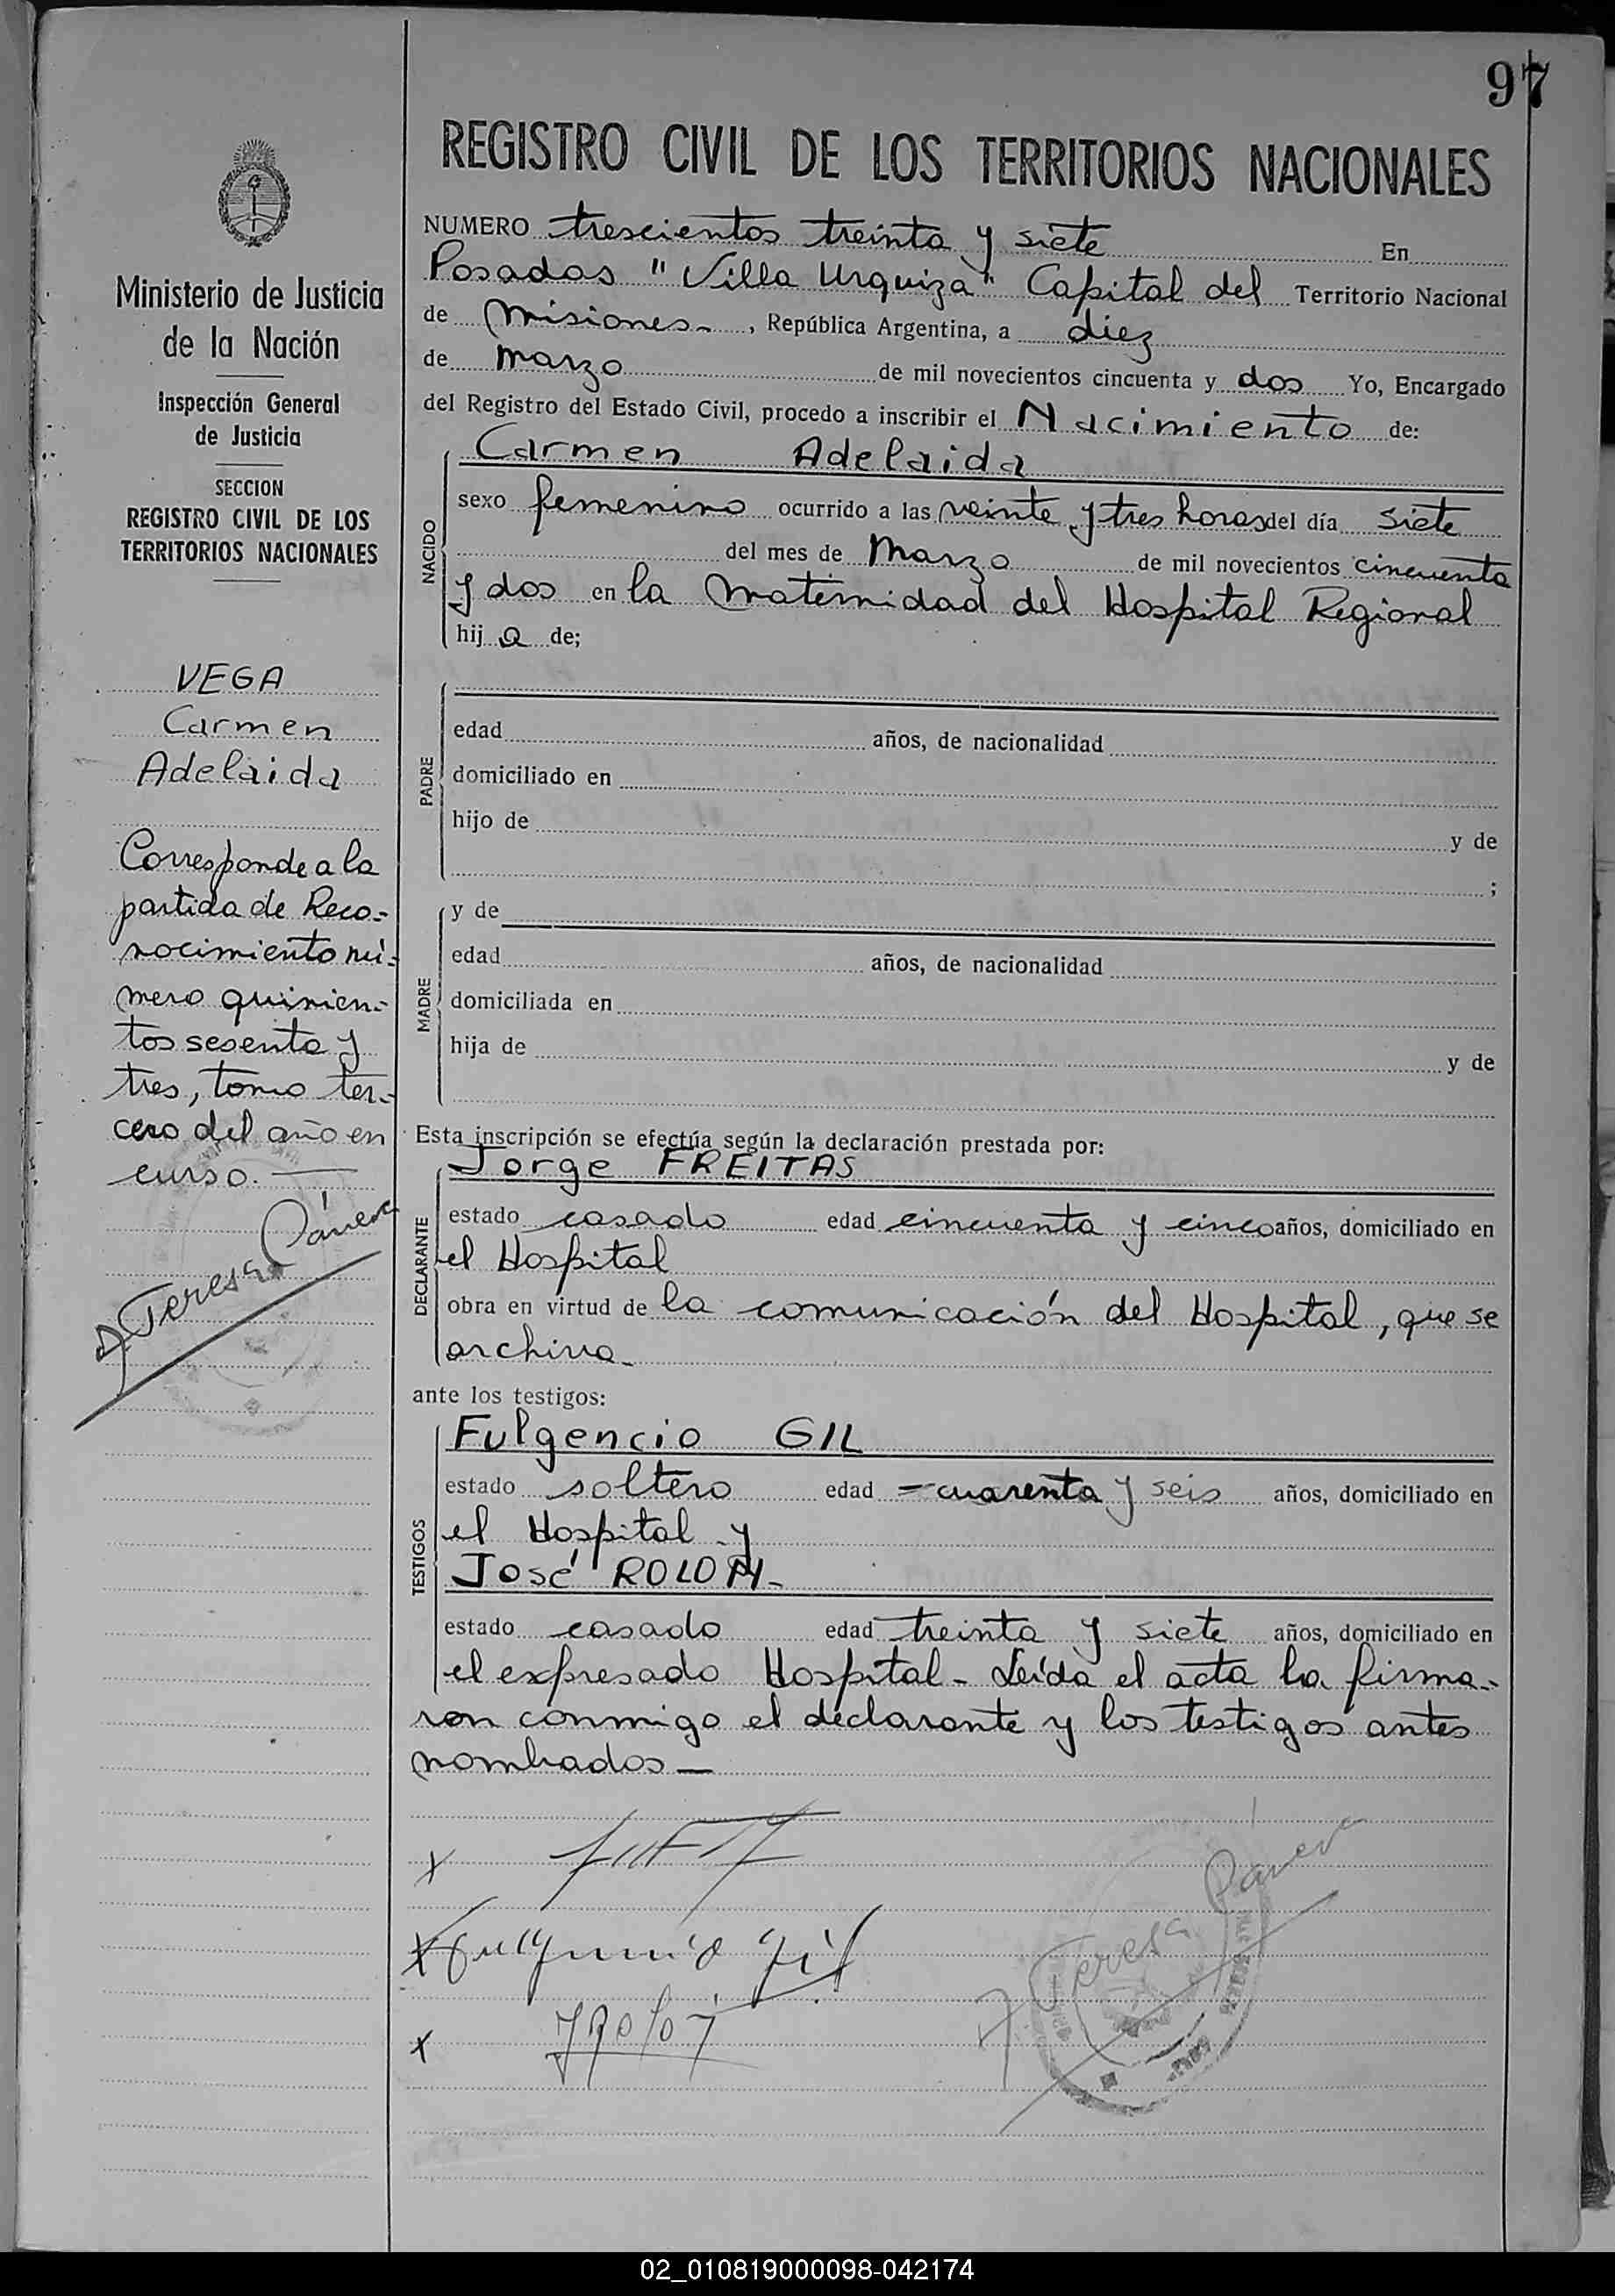 97
REGISTRO CIVIL DE LOS TERRITORIOS NACIONALES
NUMERO trescientos treinta y siete En
Posadas "Villa Urquiza" Capital del Territorio Nacional
de Misiones-, República Argentina, a diez
de marzo de mil novecientos cincuenta y dos Yo, Encargado
del Registro del Estado Civil, procedo a inscribir el Nacimiento de:
Carmen Adelaida
NACIDO
sexo femenino ocurrido a las veinte y tres horas del día siete
del mes de Marzo de mil novecientos cincuenta
y dos en la Maternidad del Hospital Regional
hij a de;
PADRE
edad años, de nacionalidad
domiciliado en
hijo de y de
;
MADRE
y de
edad años, de nacionalidad
domiciliada en
hija de y de
Esta inscripción se efectúa según la declaración prestada por:
DECLARANTE
Jorge FREITAS
estado casado edad cincuenta y cinco años, domiciliado en
el Hospital
obra en virtud de la comunicación del Hospital, que se
archiva-
ante los testigos:
TESTIGOS
Fulgencio GIL
estado soltero edad -cuarenta y seis años, domiciliado en
el Hospital y
José
estado casado edad treinta y siete años, domiciliado en
el expresado Hospital- Leída el acta la firma-
ron conmigo el declarante y los testigos antes
nombrados—
x
x Fulgencio Gil
x
Teresa
Ministerio de Justicia
de la Nación
Inspección General
de Justicia
SECCION
REGISTRO CIVIL DE LOS
TERRITORIOS NACIONALES
VEGA
Carmen
Adelaida
Corresponde a la
partida de Reco=
nocimiento nú=
mero quinien=
tos sesenta y
tres, tomo ter=
cero del año en
curso.—
Teresa
02_010819000098-042174